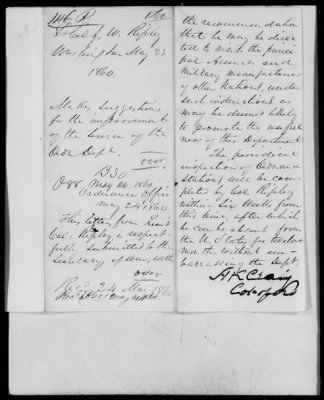 Lt Col J. W. Ripley
Washington May 23
1860.
Making suggestions
for the improvement
of the service of the
Ord. Dept.
over
Ordnance Office
May 24 1860
This letter from Lieut
Col. Ripley is respect-
fully submitted to the
Secretary of War, with
over
the recommendation
that he may be direc
ted to visit the princi
pal Armories and
Military manufactories
of other Nations, under
such instructions as
may be deemed likely
to promote the useful
ness of this Department
The periodical
inspection of Ordnance
Stations will be com
pleted by Col Ripley
within six weeks from
this time, after which
he can be absent from
the U. States for twelve
months without em-
barrassing the Dept.
H K Craig
Col of Ord